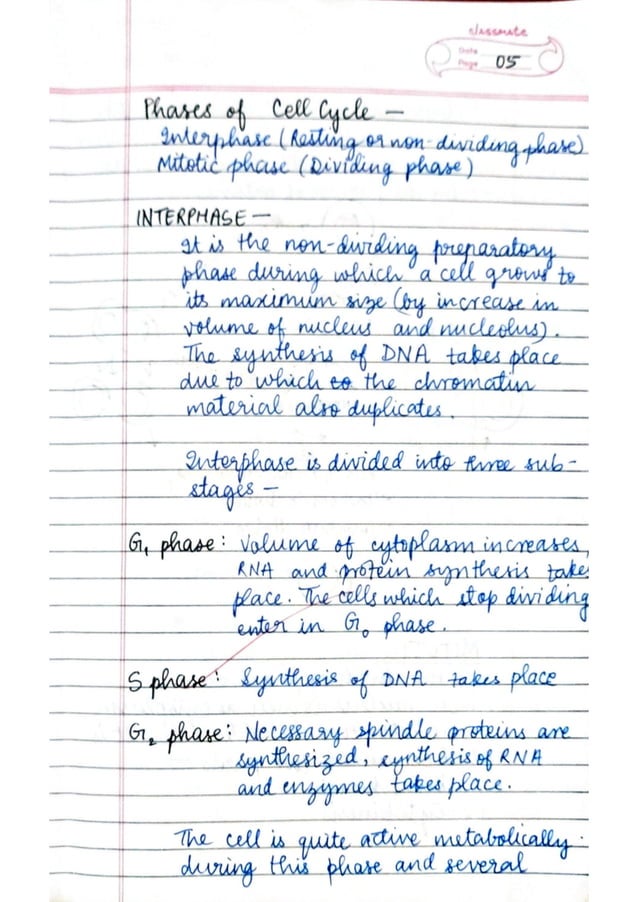 classmate
Date
Page 05
Phases of Cell Cycle —
Interphase (Resting or non-dividing phase)
Mitotic phase (Dividing phase)
INTERPHASE —
It is the non-dividing preparatory
phase during which a cell grows to
its maximum size (by increase in
volume of nucleus and nucleolus).
The synthesis of DNA takes place
due to which to the chromatin
material also duplicates.
Interphase is divided into three sub-
stages —
G₁ phase: Volume of cytoplasm increases,
RNA and protein synthesis takes
place. The cells which stop dividing
enter in G₀ phase.
S phase: Synthesis of DNA takes place
G₂ phase: Necessary spindle proteins are
synthesized, synthesis of RNA
and enzymes takes place.
The cell is quite active metabolically
during this phase and several